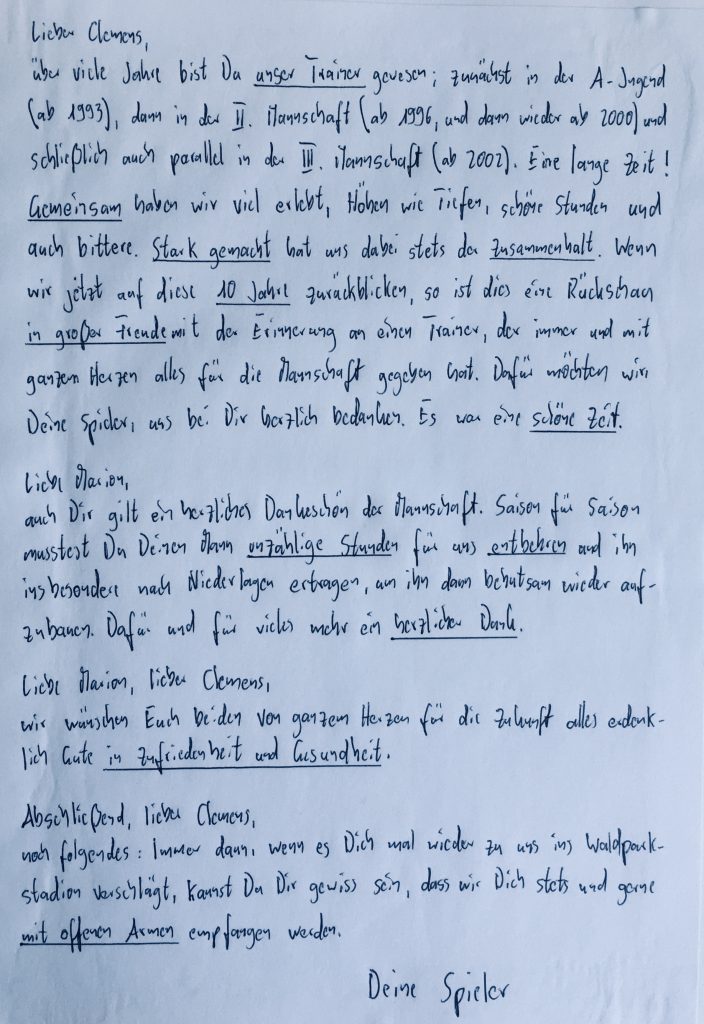 Lieber Clemens,
über viele Jahre bist Du unser Trainer gewesen; zunächst in der A-Jugend
(ab 1993), dann in der II. Mannschaft (ab 1996, und dann wieder ab 2000) und
schließlich auch parallel in der III. Mannschaft (ab 2002). Eine lange Zeit!
Gemeinsam haben wir viel erlebt, Höhen wie Tiefen, schöne Stunden und
auch bittere. Stark gemacht hat uns dabei stets der Zusammenhalt. Wenn
wir jetzt auf diese 10 Jahre zurückblicken, so ist dies eine Rückschau
in großer Freude mit der Erinnerung an einen Trainer, der immer und mit
ganzem Herzen alles für die Mannschaft gegeben hat. Dafür möchten wir,
Deine Spieler, uns bei Dir herzlich bedanken. Es war eine schöne Zeit.
Liebe Marion,
auch Dir gilt ein herzliches Dankeschön der Mannschaft. Saison für Saison
musstest Du Deinen Mann unzählige Stunden für uns entbehren und ihn
insbesondere nach Niederlagen ertragen, um ihn dann behutsam wieder auf-
zubauen. Dafür und für vieles mehr ein herzlicher Dank.
Liebe Marion, lieber Clemens,
wir wünschen Euch beiden von ganzem Herzen für die Zukunft alles erdenk-
lich Gute in Zufriedenheit und Gesundheit.
Abschließend, lieber Clemens,
noch folgendes: Immer dann, wenn es Dich mal wieder zu uns ins Waldpark-
stadion verschlägt, kannst Du Dir gewiss sein, dass wir Dich stets und gerne
mit offenen Armen empfangen werden.
Deine Spieler